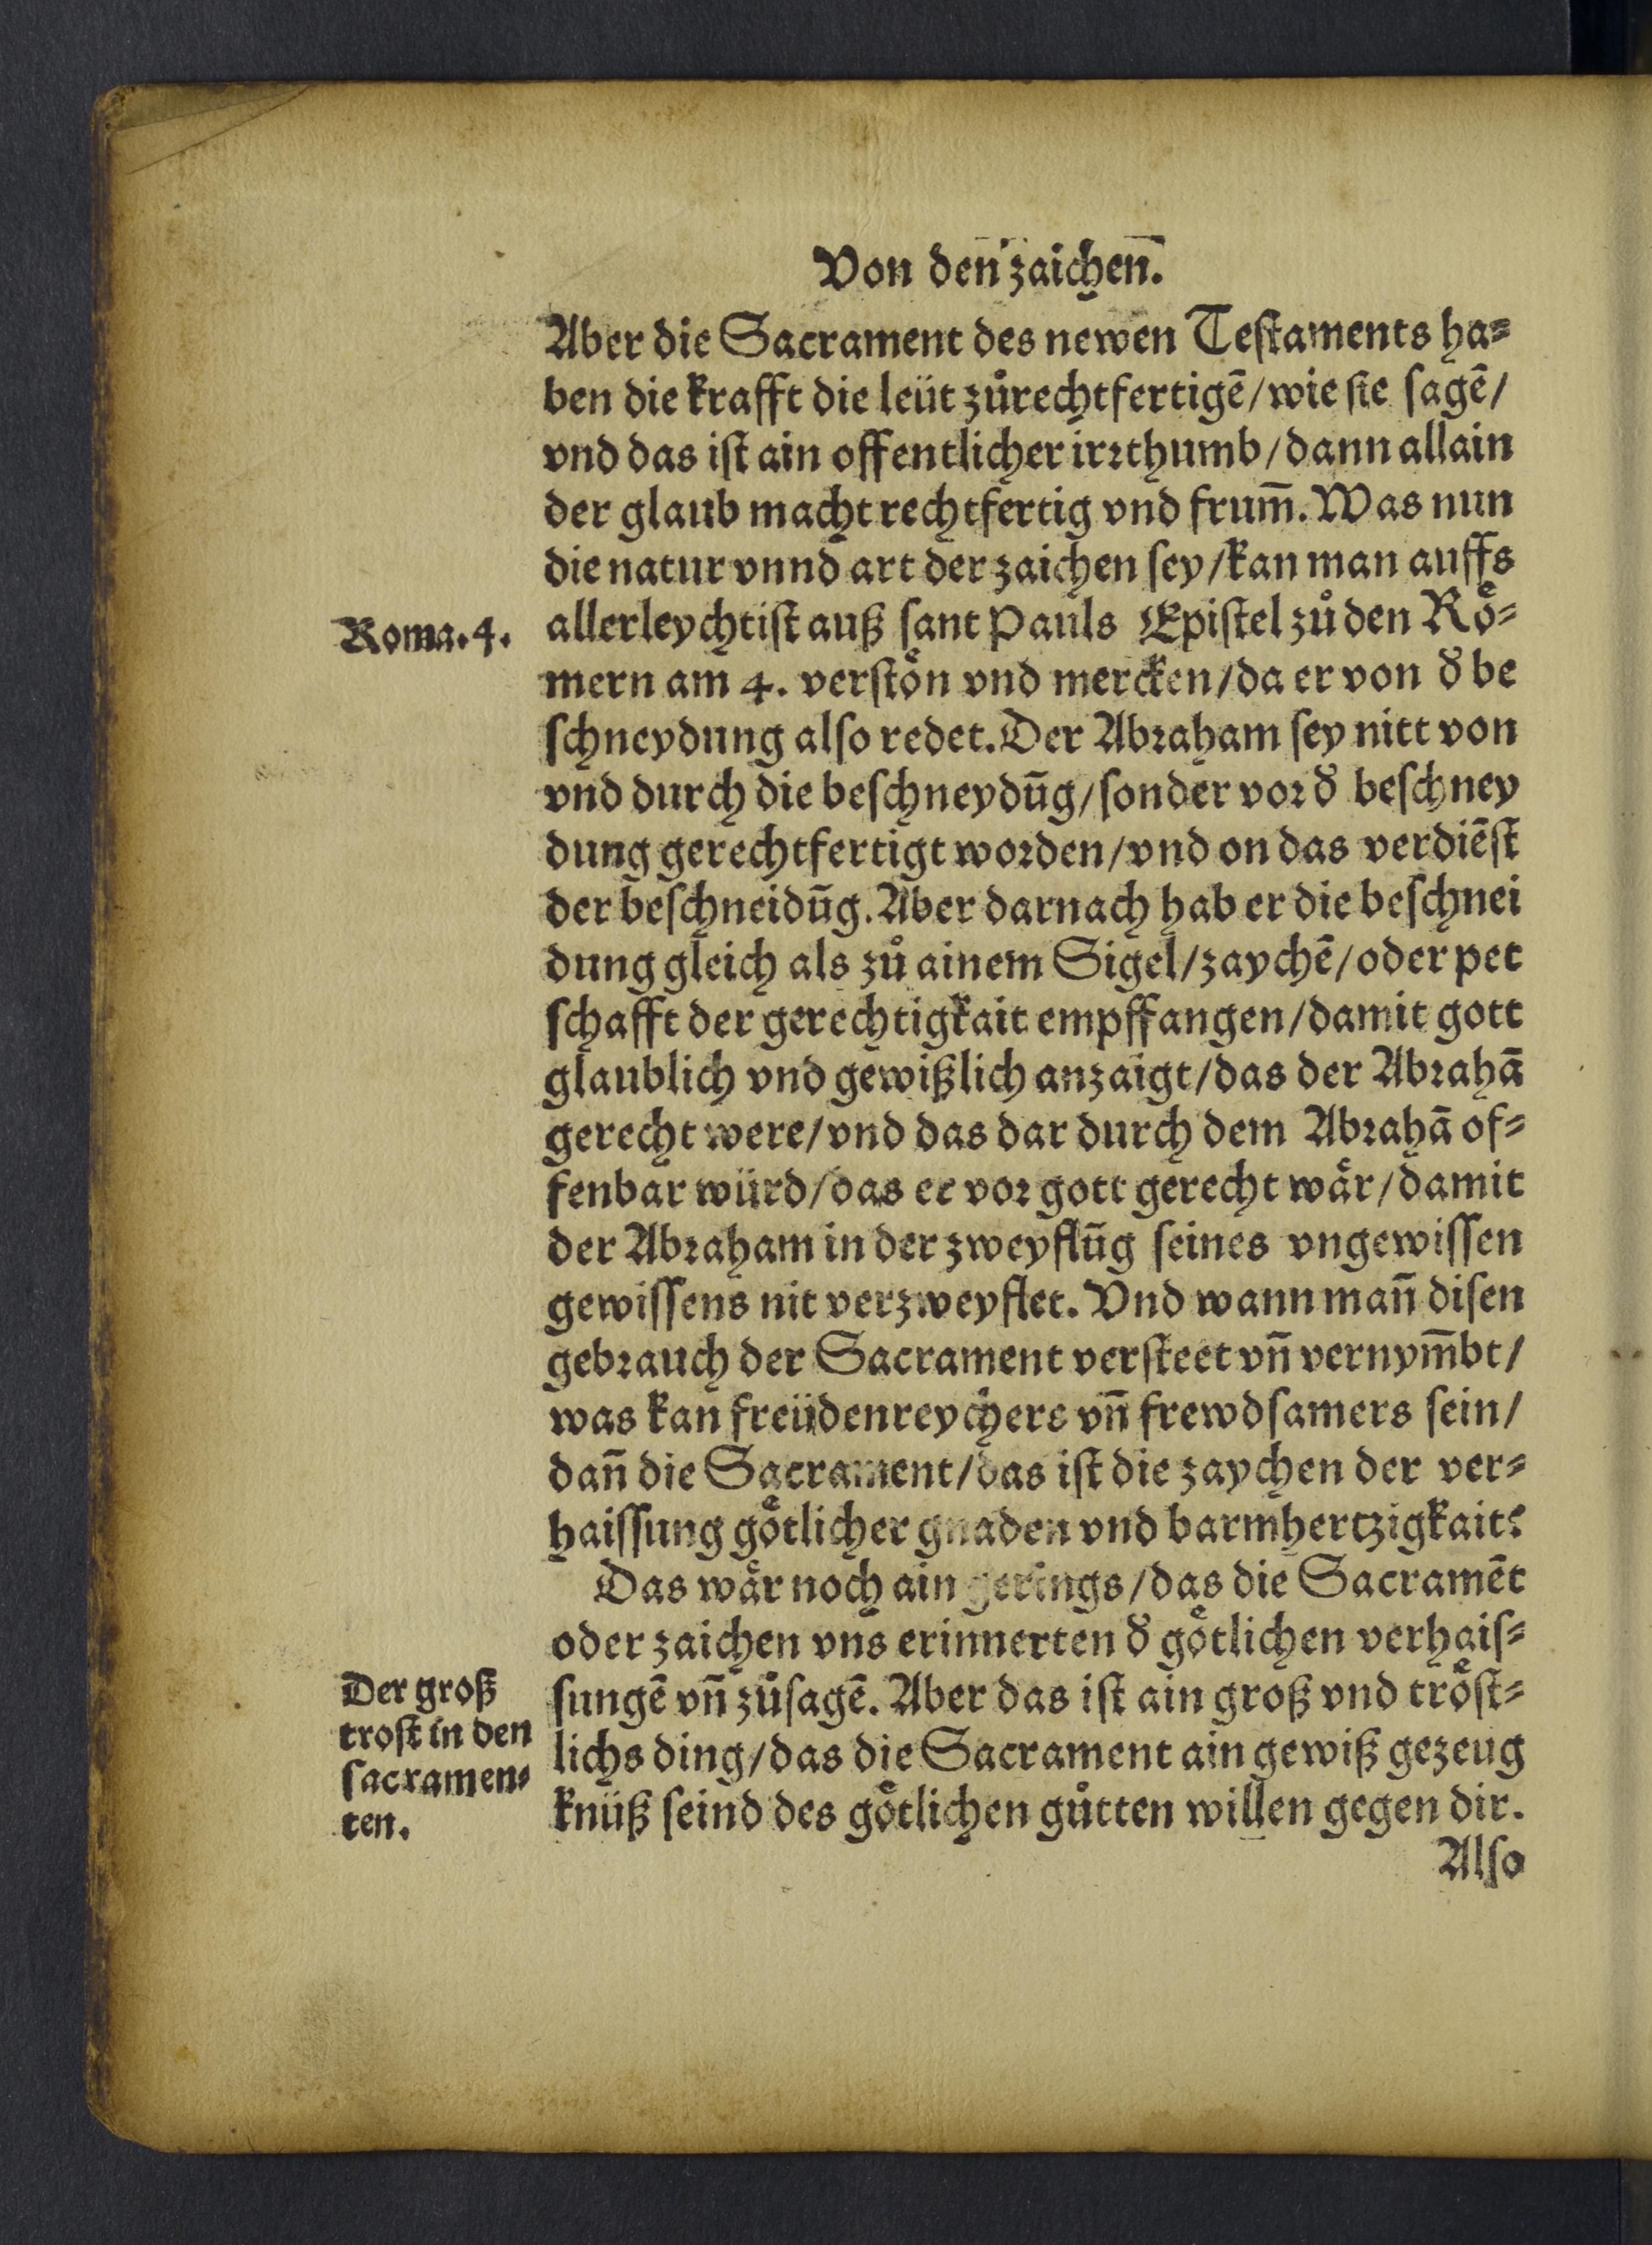 Von den zaichen.
Aber die Sacrament des newen Teſtaments ha⸗
ben die krafft die leüt zůrechtfertigē/wie ſie ſagē/
vnd das iſt ain offentlicher irꝛthumb/dann allain
der glaub macht rechtfertig vnd frum̄. Was nun
die natur vnnd art der zaichen ſey/kan man auffs
Roma.4.
allerleychtiſt auß ſant Pauls Epiſtel zů den Roͤ⸗
mern am 4. verſtoͤn vnd mercken/da er von d̕ be
ſchneydung alſo redet. Der Abꝛaham ſey nitt von
vnd durch die beſchneydūg/ſonder voꝛ d̕ beſchney
dung gerechtfertigt woꝛden/vnd on das verdiēſt
der beſchneidūg. Aber darnach hab er die beſchnei
dung gleich als zů ainem Sigel/zaychē/oder pet
ſchafft der gerechtigkait empffangen/damit gott
glaublich vnd gewißlich anzaigt/das der Abꝛahā
gerecht were/vnd das dar durch dem Abꝛahā of⸗
fenbar würd/das er voꝛ gott gerecht waͤr/damit
der Abꝛaham in der zweyflūg ſeines vngewiſſen
gewiſſens nit verzweyflet. Vnd wann man̄ diſen
gebꝛauch der Sacrament verſteet vn̄ vernym̄bt/
was kan freüdenreychers vn̄ frewdſamers ſein/
dan̄ die Sacrament/das iſt die zaychen der ver⸗
haiſſung goͤtlicher gnaden vnd barmhertzigkait?
Das waͤr noch ain gerings/das die Sacramēt
oder zaichen vns erinnerten d̕ goͤtlichen verhaiſ⸗
Der groß
troſt in den
ſacramen⸗
ten.
ſungē vn̄ zůſagē. Aber das iſt ain groß vnd troͤſt⸗
lichs ding/das die Sacrament ain gewiß gezeug
knüß ſeind des goͤtlichen gůtten willen gegen dir.
Alſo